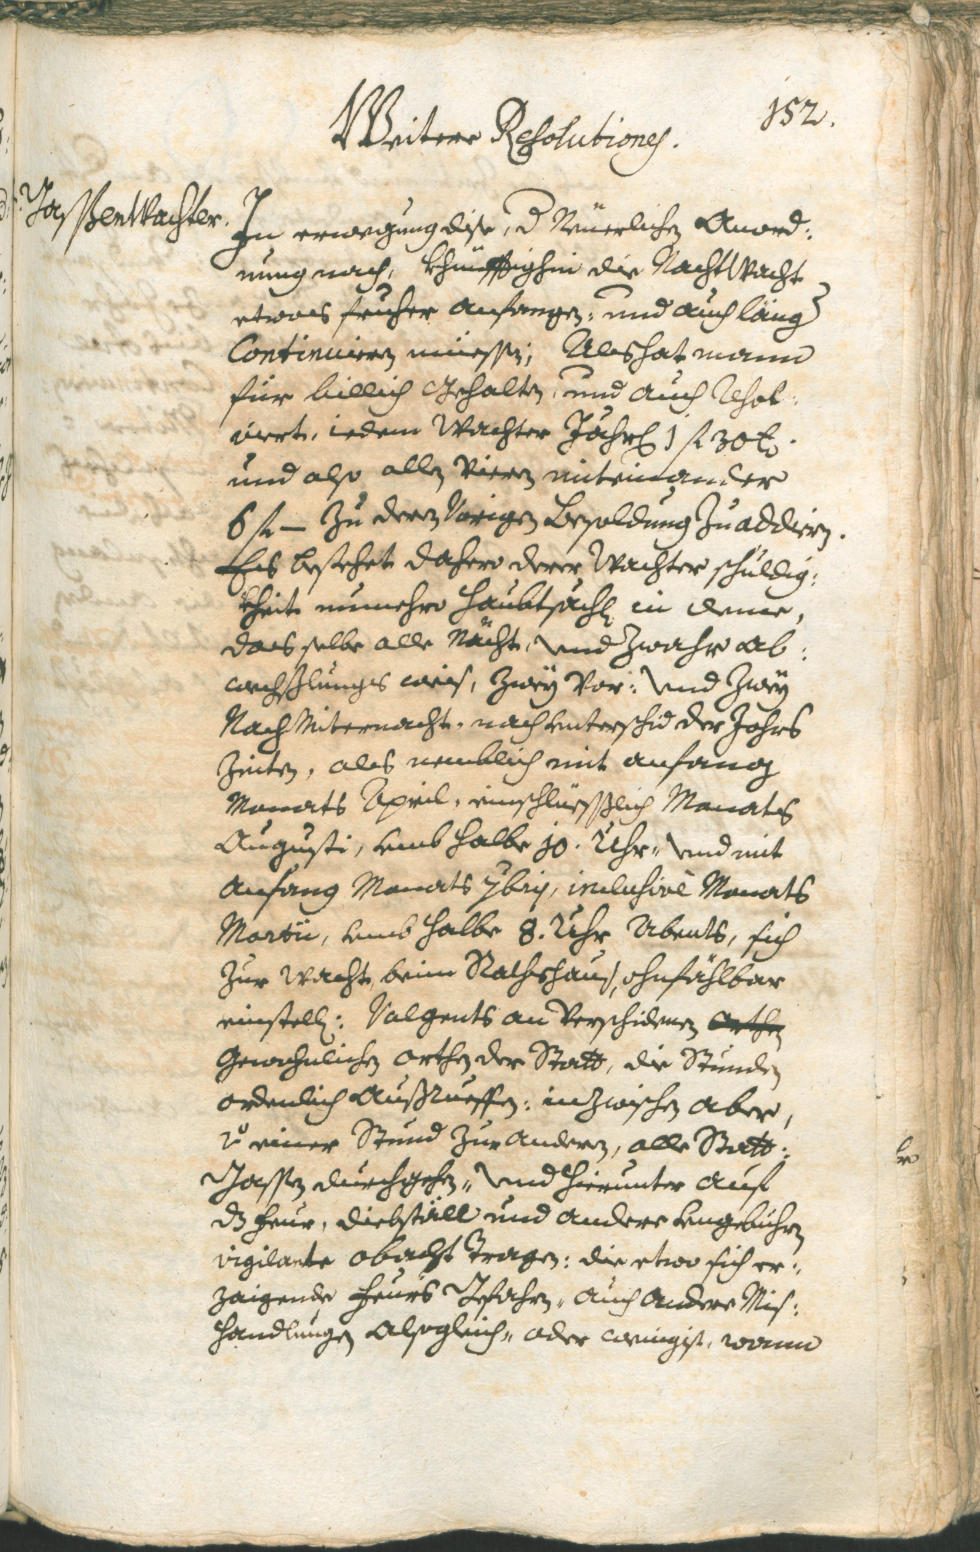 152.
Weitere Resolutiones.
Gassenwachter.
In erwegung dise, der Neüerlichen Anord:
nung nach, khünfftighin die NachtWacht
etwas früher anfangen, und auch länger
Continuiren müessen; Als hat mann
für billich gehalten, und auch resol:
virt, iedem Wachter Jährl. 1 fl 30 kr.
und also allen Vieren miteinander
6 fl — zu deren Vorigen Besoldung zu addiren.
Es bestehet dahero derer Wachter schuldig:
kheit nunmehro haubtsächl. in deme,
das selbe alle Nächt, und zwahr ab:
wechslungs weis, zwey Vor: und zwey
Nach Miternacht, nach unterschid der Jahrs
Zeiten, als nemblich mit anfang
Monats April, einschlüesslich Monats
Augusti, umb halbe 10. Uhr, und mit
anfang Monats 7bris, inclusivè Monats
Martii, umb halbe 8. Uhr Abents, sich
zur wacht, beim Rathshaus, ohnfählbar
einstellen: Volgents an Verschidenen orthen
gewohnlichen orthen der Statt, die Stunden
ordenlich Außrueffen: inzwischen aber,
von einer Stund zur anderen, alle Statt:
Gassen durchgehen, und hierunter auf
das feur, diebställ und andere ungebühren
vigilante obacht tragen: die etwo sich er:
zaigende feurs Gefahren, auch andere Mis:
handlungen alsogleich, oder wenigist, wann